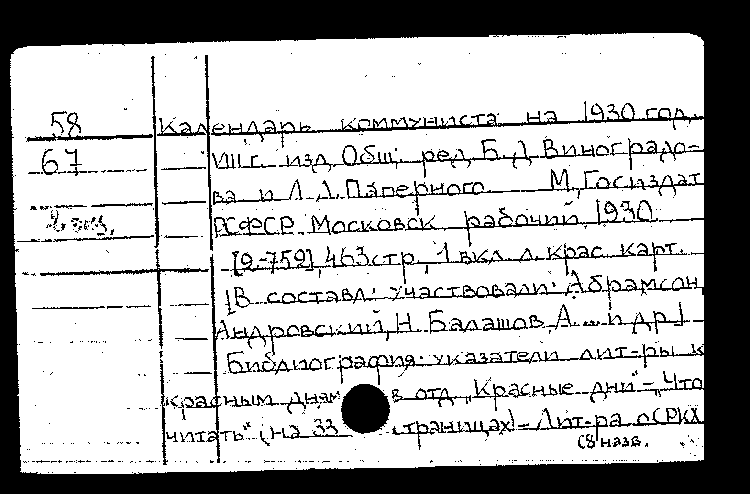 58 Календарь коммуниста на 1930 год.
67 VIII г. изд. Общ. ред. Б. Д. Виноградо-
ва и Л. Л. Паперного. М, Госиздат
2 экз. РСФСР. Московск рабочий, 1930.
[2-759], 463 стр., 1 вкл. л. крас. карт.
[В составл: участвовали: Абрамсон,
Андровский, Н. Балашов, А ... и др.]
Библиография: указатели лит-ры к
красным дням в отд. „Красные дни“ - „Что
читать“ (на 33 страницах) - Лит-ра о СРКК
(8 назв.